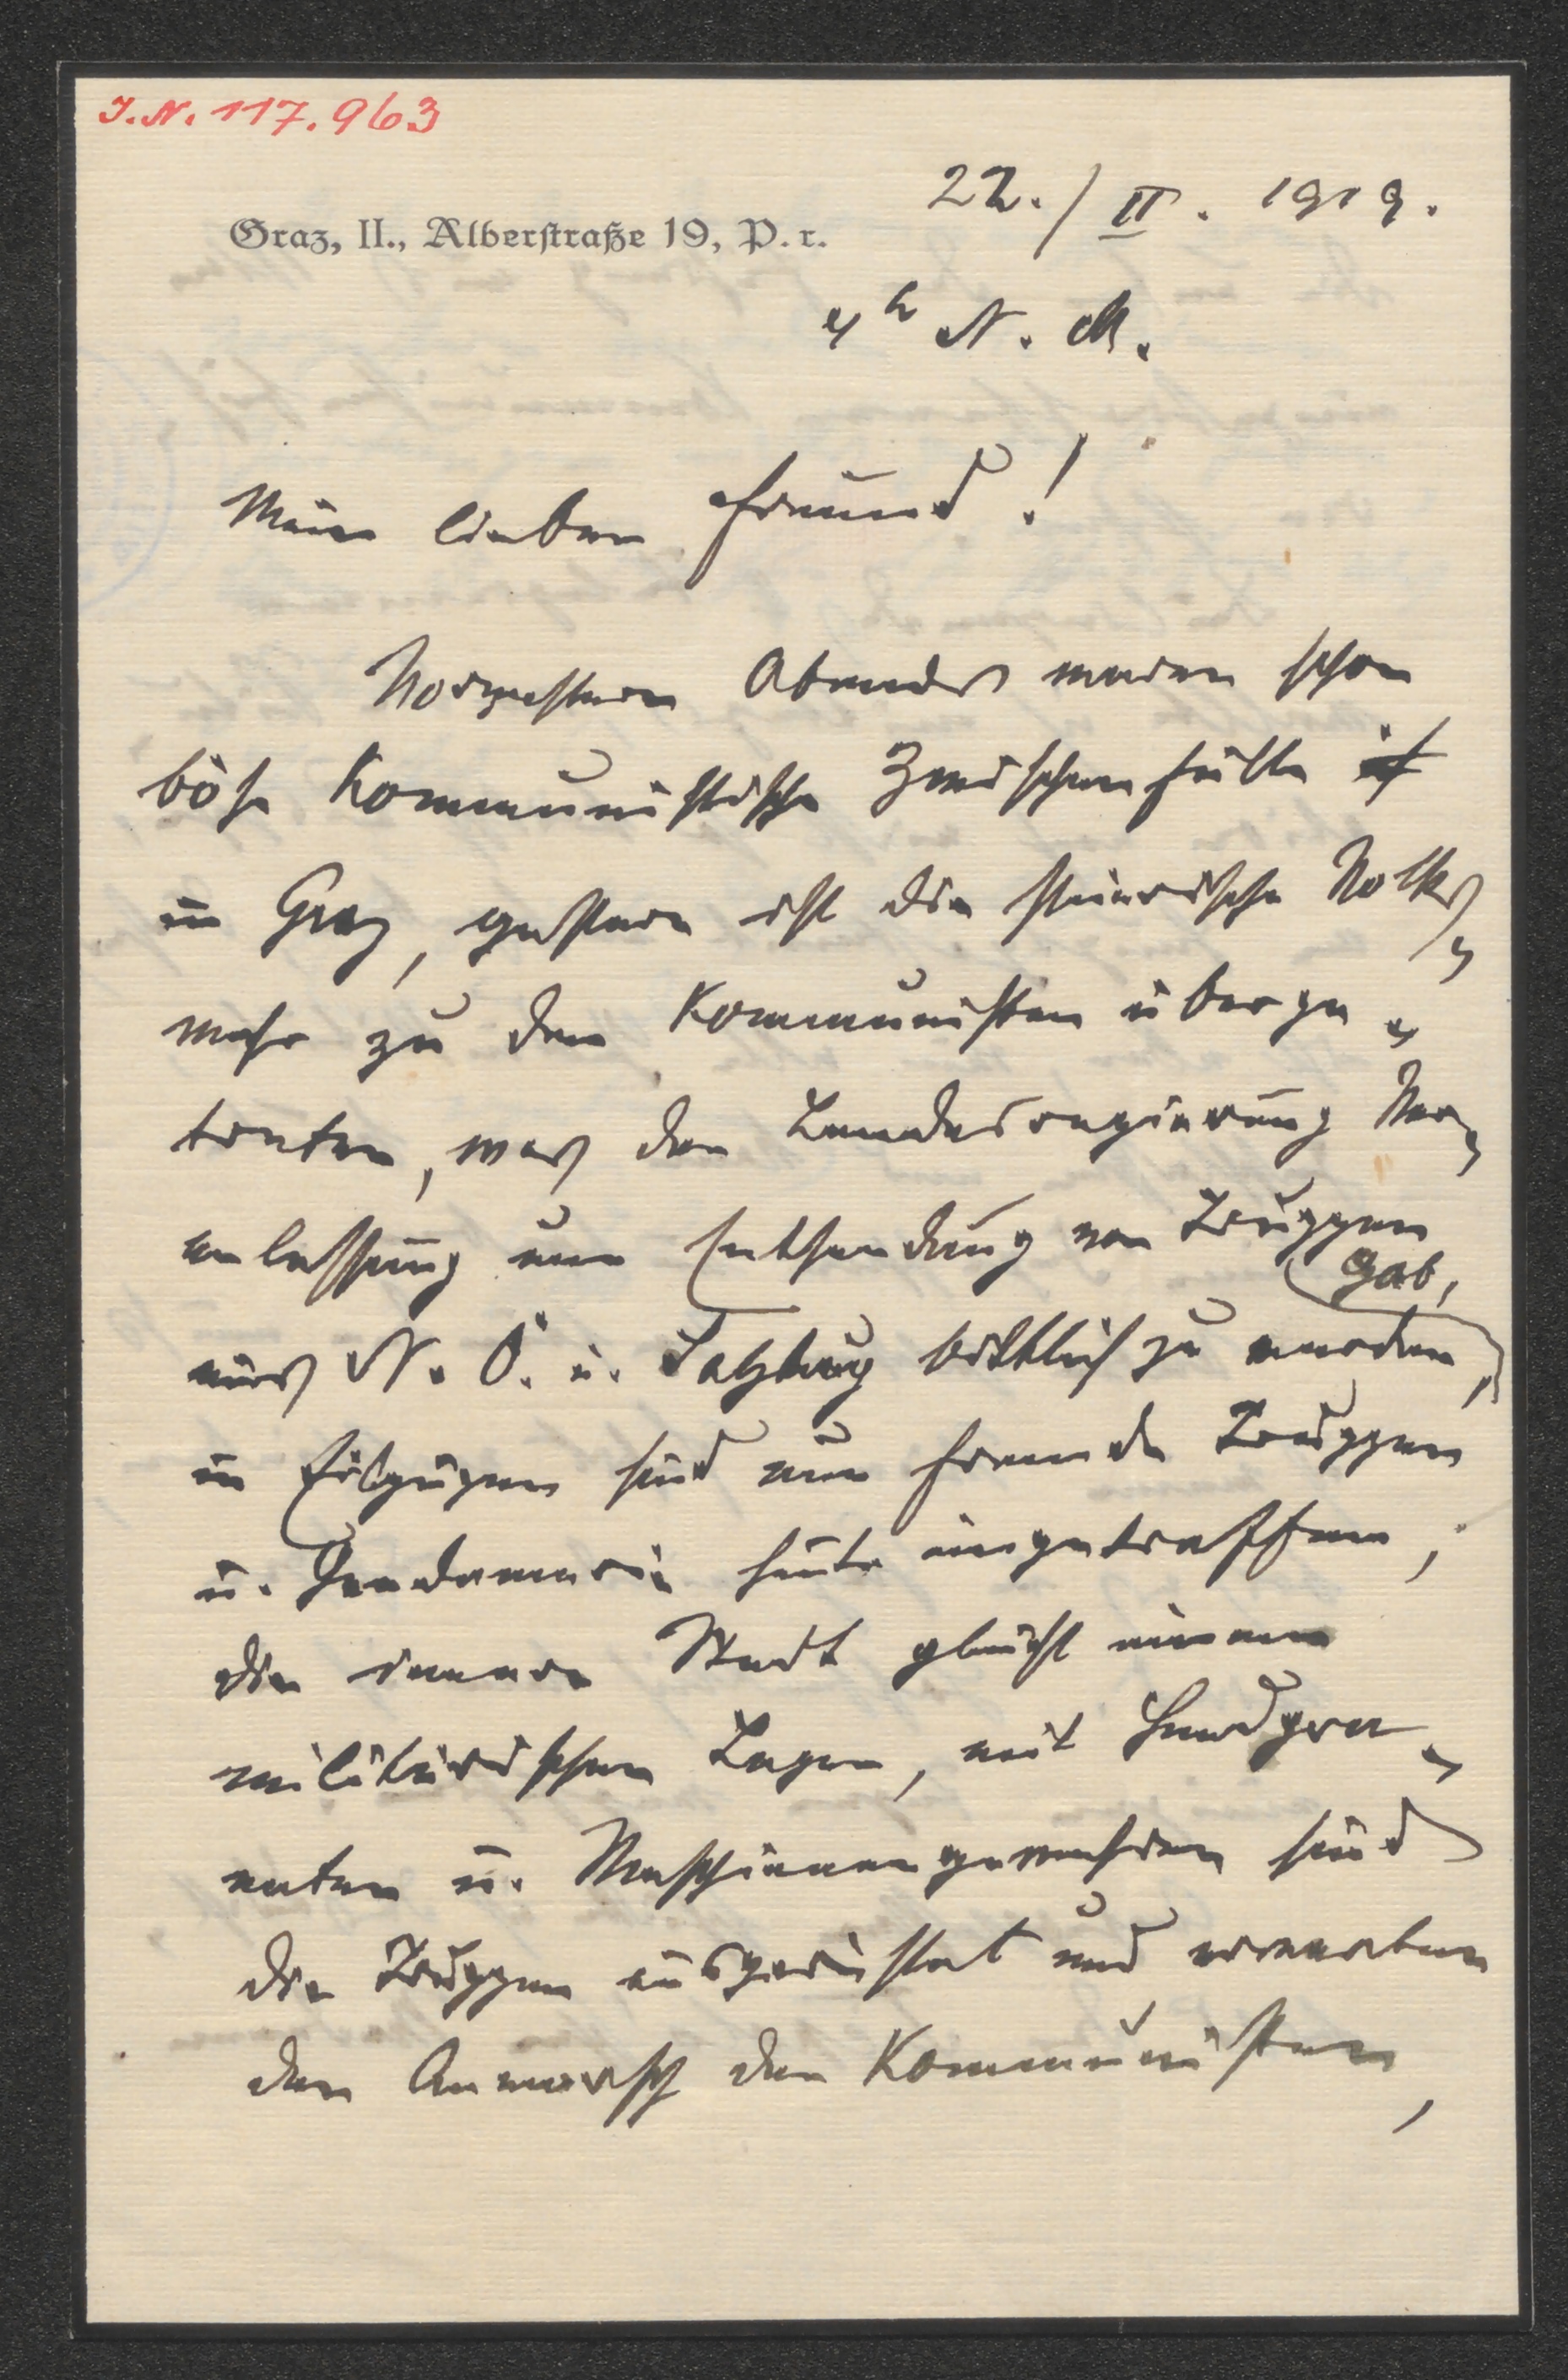 I.N. 117.963
22./II. 1919.
Graz, II., Alberstraße 19, P. r.
4h N. M.
Mein lieber Freund!
Vorgestern Abends waren schon
böse kommunistische Zwischenfälle
in Graz, gestern ist die steierische Volks-
wehr zu den Kommunisten überge-
treten, was der Landesregierung Ver-
anlassung um Entsendung von Truppen
gab,
aus N. Ö. u. Salzburg bittlich zu werden,
in Eilzügen sind nun fremde Truppen
u. Gendamerie heute eingetroffen,
die innere Stadt gleicht einem
militärischen Lager, mit Handgra-
naten u. Maschinengewehren sind
die Truppen ausgerüstet und erwarten
den Anmarsch der Kommunisten,